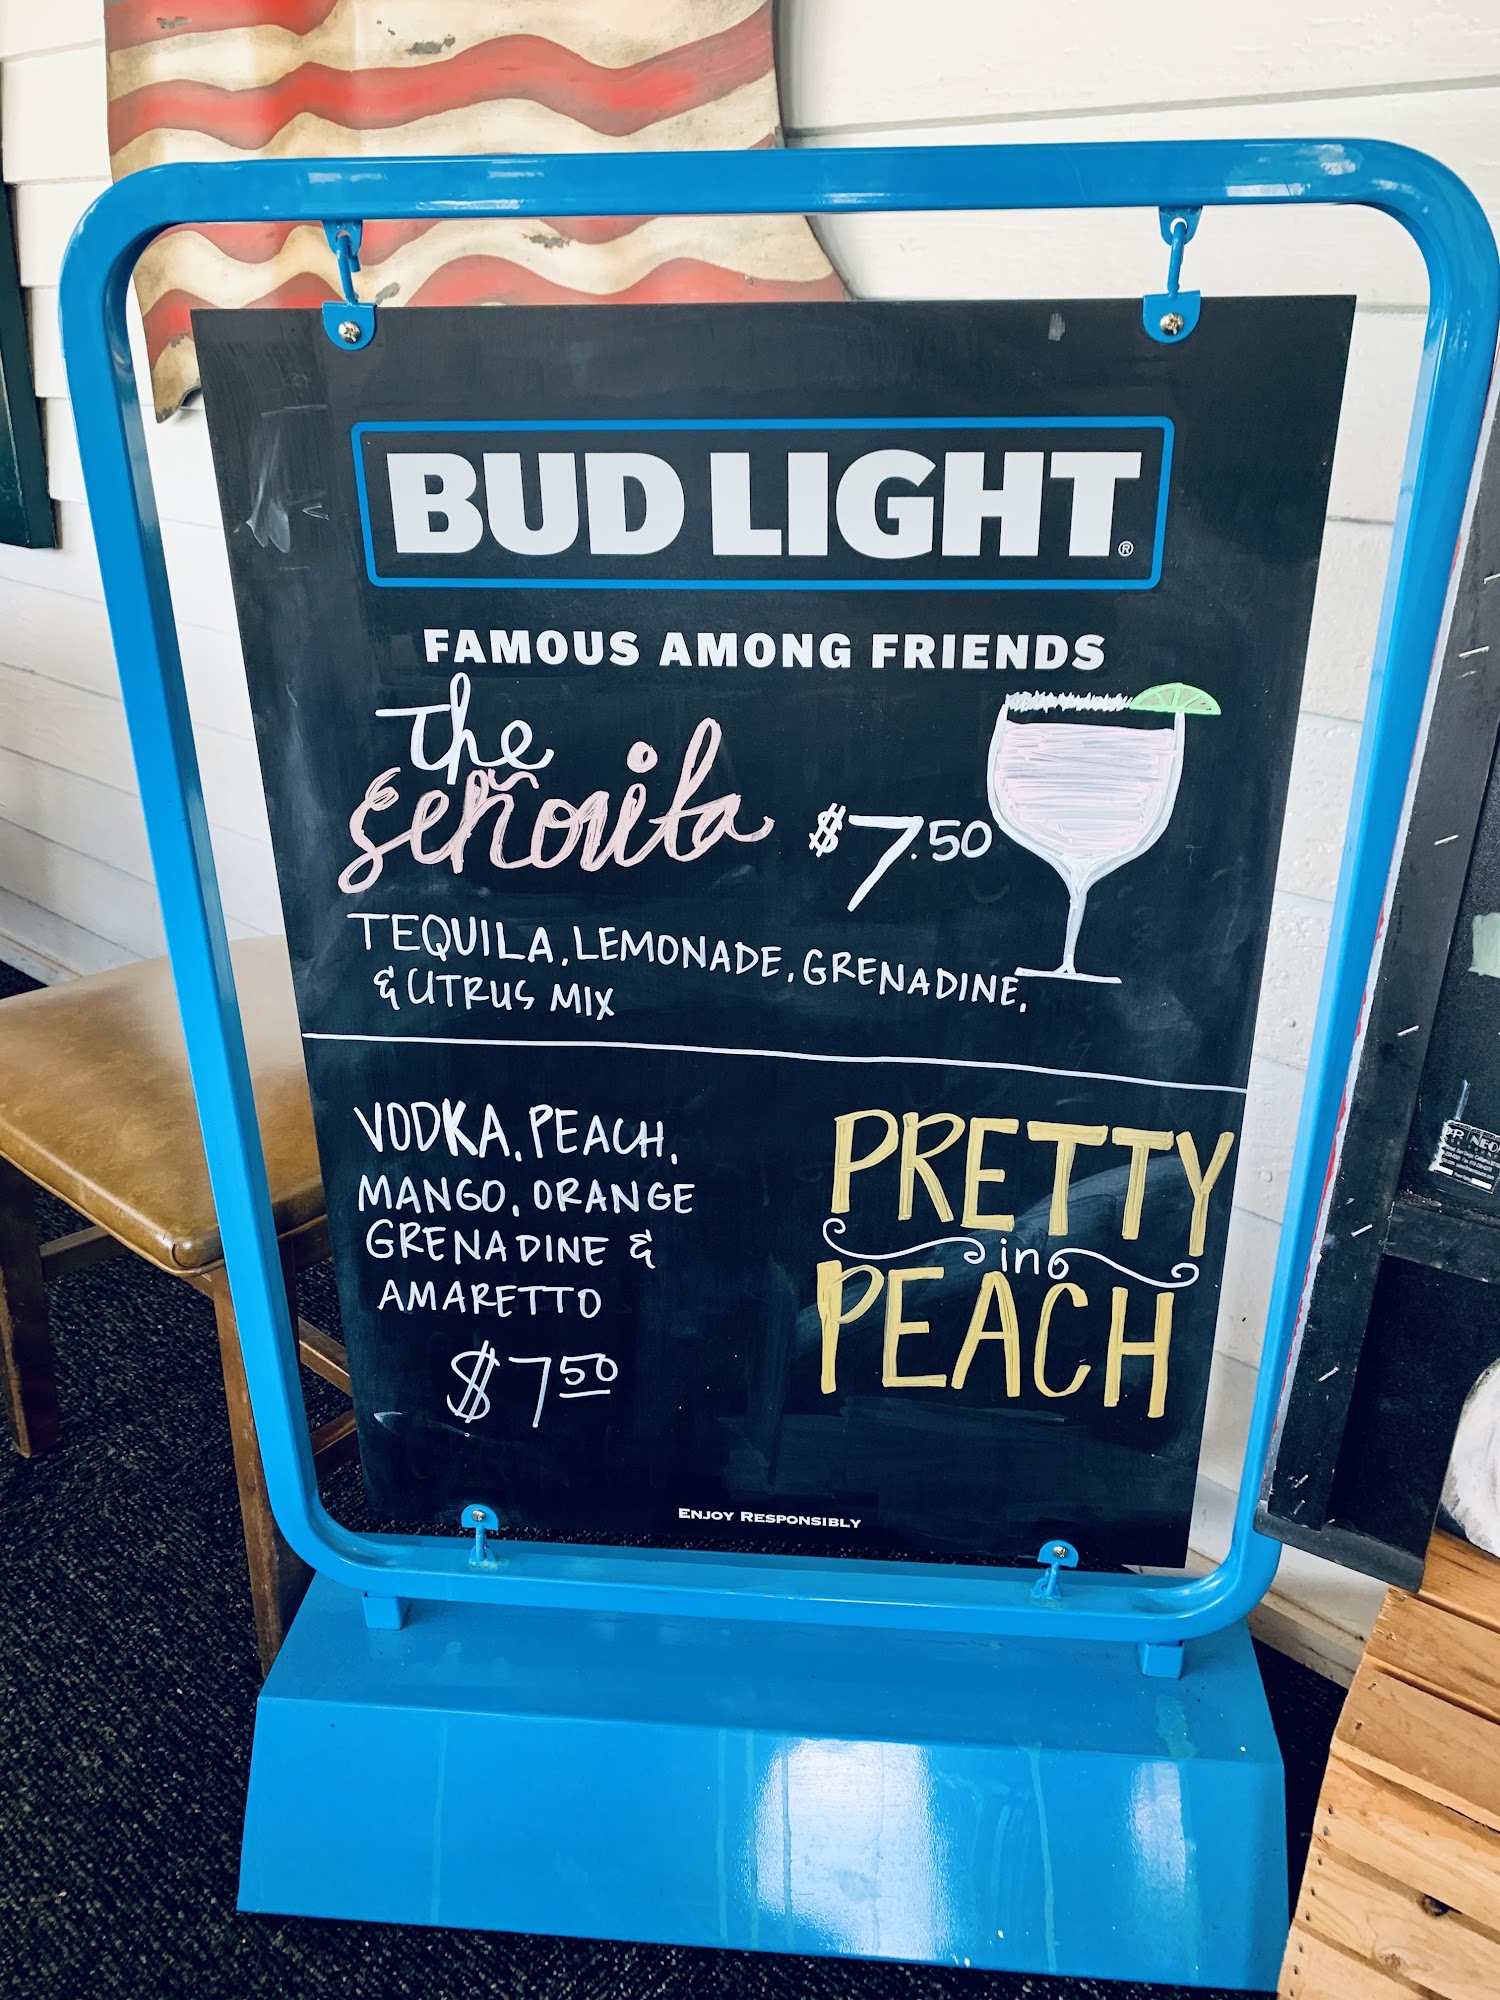 BUD LIGHT®
FAMOUS AMONG FRIENDS
the
señorita
$7.50
TEQUILA, LEMONADE, GRENADINE,
& CITRUS MIX
VODKA, PEACH,
MANGO, ORANGE
GRENADINE &
AMARETTO
$7.50
PRETTY
in
PEACH
ENJOY RESPONSIBLY